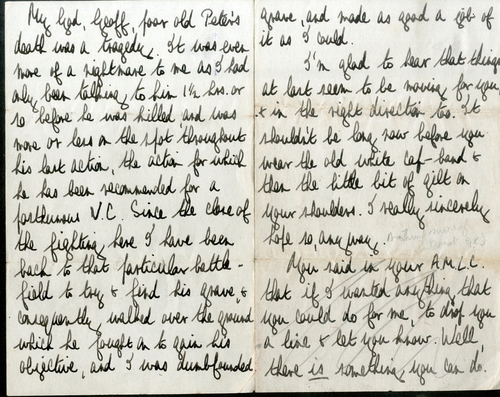 My God, Geoff, poor old Peter's
death was a tragedy. It was even
more of a nightmare to me as I had
only been talking to him 1½ hrs. or
so before he was killed, and was
more or less on the spot throughout
his last action, the action for which
he has been recommended for a
posthumous V.C. Since the close of
the fighting here I have been
back to that particular battle-
field to try & find his grave, &
consequently walked over the ground
which he fought on to gain his
objective, and I was dumbfounded
grave, and made as good a job of
it as I could.
I'm glad to hear that things
at last seem to be moving for you,
& in the right direction too. It
shouldn't be long now before you
wear the old white cap-band &
then the little bit of gilt on
your shoulders. I really sincerely
hope so, any way.
You said in your A.M.L.C.
that if I wanted anything that
you could do for me, to drop you
a line & let you know. Well
there is something you can do.